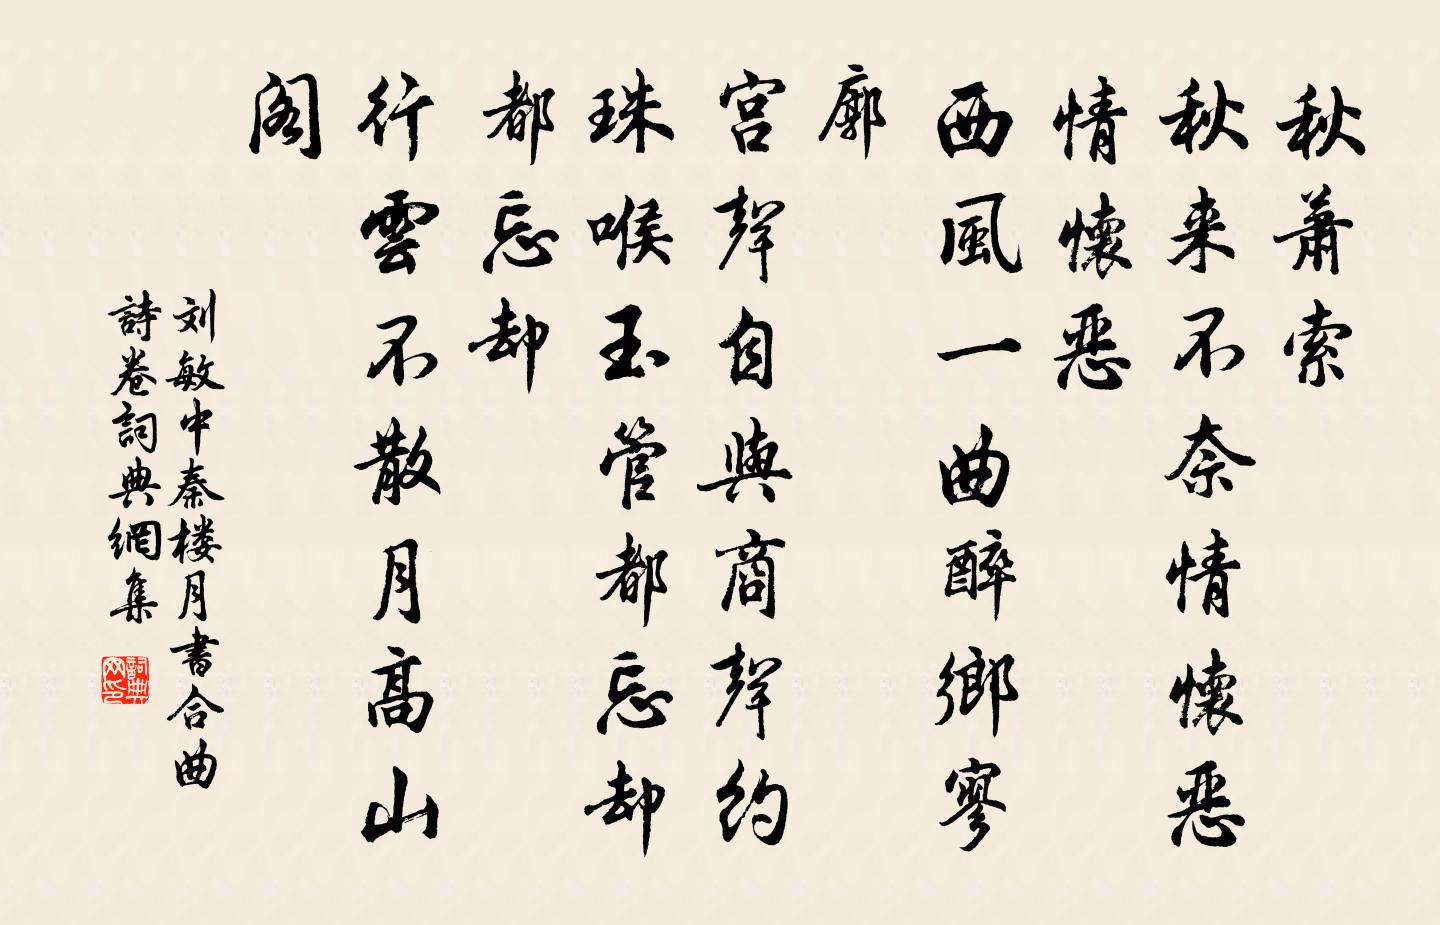 秋蕭索
秋来不奈情懷惡
情懷惡
西風一曲醉鄉寥
廓
宮聲自與商聲約
珠喉玉管都忘却
都忘却
行雲不散月高山
閣
刘敏中秦楼月书合曲
詩卷詞典網集
詞典网印